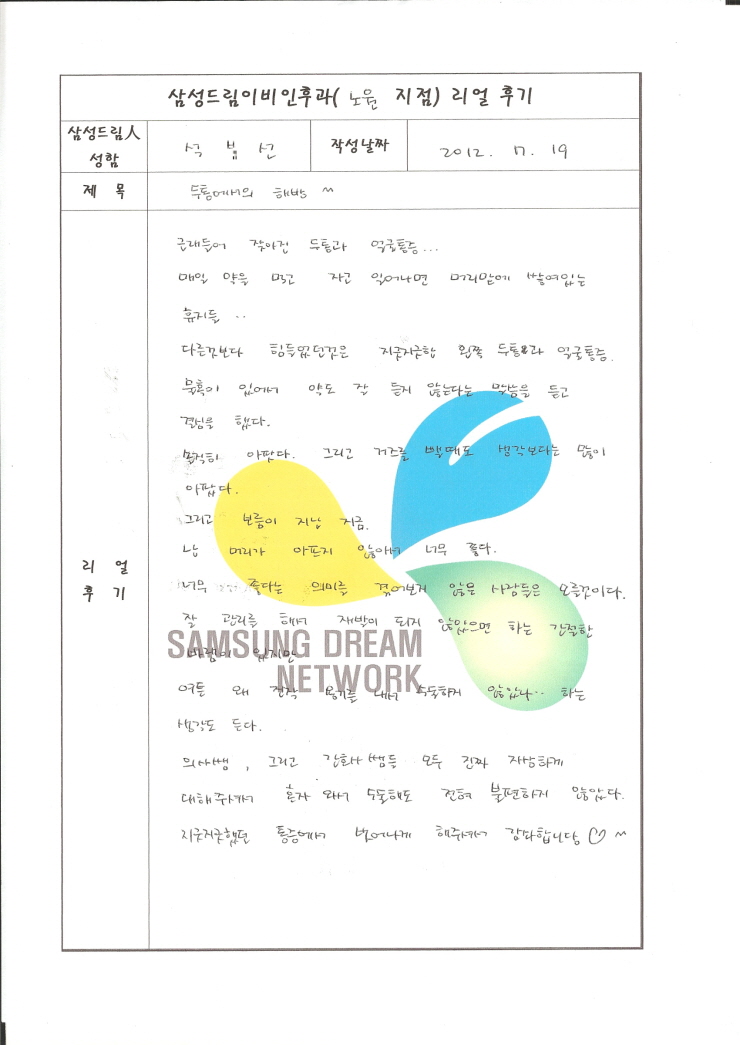 삼성드림이비인후과( 노원 지점) 리얼 후기
삼성드림人 성함
석 범 선
작성날짜
2012. 7. 19
제 목
두통에서의 해방 ~
리 얼 후 기
근래들어 잦아진 두통과 얼굴통증...
매일 약을 먹고 자고 일어나면 머리맡에 쌓여있는
휴지들 ..
다른것보다 힘들었던것은 지긋지긋한 왼쪽 두통과 얼굴통증.
물혹이 있어서 약도 잘 듣지 않는다는 말씀을 듣고
결심을 했다.
솔직히 아팠다. 그리고 거즈를 뺄때도 생각보다는 많이
아팠다.
그리고 보름이 지난 지금.
난 머리가 아프지 않아서 너무 좋다.
너무 좋다는 의미를 겪어보지 않은 사람들은 모를것이다.
잘 관리를 해서 재발이 되지 않았으면 하는 간절한
바램이 있지만
여튼 왜 진작 용기를 내서 수술하지 않았나.. 하는
생각도 든다.
의사쌤, 그리고 간호사쌤들 모두 진짜 자상하게
대해주셔서 혼자 와서 수술해도 전혀 불편하지 않았다.
지긋지긋했던 통증에서 벗어나게 해주셔서 감사합니당 ♡ ~
SAMSUNG DREAM
NETWORK